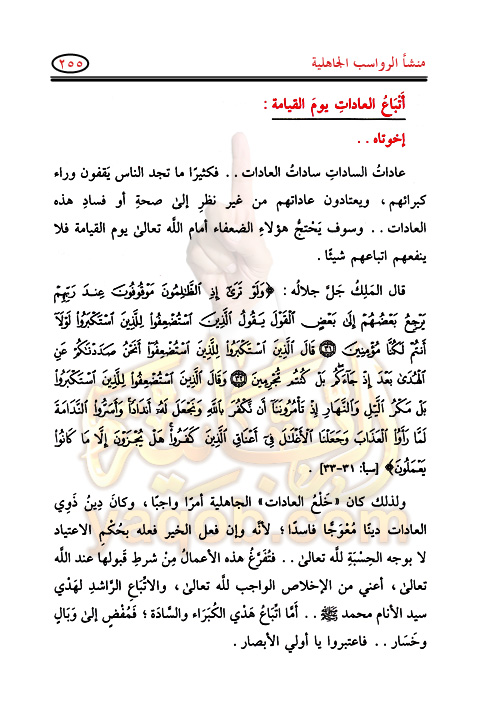 منشأ الرواسب الجاهلية
٢٥٥
أَتْبَاعُ العاداتِ يومَ القيامة :
إخوتاه . .
عاداتُ الساداتِ ساداتُ العادات . . فكثيرًا ما تجد الناس يَقفون وراء
كبرائهم ، ويعتادون عاداتهم من غير نظرٍ إلىٰ صحةِ أو فسادِ هذه
العادات . . وسوف يَحْتجُّ هؤلاءِ الضعفاء أمام اللَّه تعالىٰ يوم القيامة فلا
ينفعهم اتباعهم شيئًا .
قال المَلِكُ جَلَّ جلالُه : ﴿وَلَوْ تَرَىٰٓ إِذِ ٱلظَّٰلِمُونَ مَوْقُوفُونَ عِندَ رَبِّهِمْ
يَرْجِعُ بَعْضُهُمْ إِلَىٰ بَعْضٍ ٱلْقَوْلَ يَقُولُ ٱلَّذِينَ ٱسْتُضْعِفُوا۟ لِلَّذِينَ ٱسْتَكْبَرُوا۟ لَوْلَآ
أَنتُمْ لَكُنَّا مُؤْمِنِينَ ﴿٣١﴾ قَالَ ٱلَّذِينَ ٱسْتَكْبَرُوا۟ لِلَّذِينَ ٱسْتُضْعِفُوٓا۟ أَنَحْنُ صَدَدْنَٰكُمْ عَنِ
ٱلْهُدَىٰ بَعْدَ إِذْ جَآءَكُم بَلْ كُنتُم مُّجْرِمِينَ ﴿٣٢﴾ وَقَالَ ٱلَّذِينَ ٱسْتُضْعِفُوا۟ لِلَّذِينَ ٱسْتَكْبَرُوا۟
بَلْ مَكْرُ ٱلَّيْلِ وَٱلنَّهَارِ إِذْ تَأْمُرُونَنَآ أَن نَّكْفُرَ بِٱللَّهِ وَنَجْعَلَ لَهُۥٓ أَندَادًا وَأَسَرُّوا۟ ٱلنَّدَامَةَ
لَمَّا رَأَوُا۟ ٱلْعَذَابَ وَجَعَلْنَا ٱلْأَغْلَٰلَ فِىٓ أَعْنَاقِ ٱلَّذِينَ كَفَرُوا۟ هَلْ يُجْزَوْنَ إِلَّا مَا كَانُوا۟
يَعْمَلُونَ﴾ [سبأ: ٣١-٣٣] .
ولذلك كان «خَلْعُ العادات» الجاهلية أمرًا واجبًا ، وكانَ دِينُ ذَوِي
العادات دينًا مُعْوَجًّا فاسدًا ؛ لأنَّه وإن فعل الخير فعله بِحُكْمِ الاعتياد
لا بوجه الحِسْبَةِ للَّه تعالىٰ . . فَتُفَرَّغُ هذه الأعمالُ مِنْ شرطِ قبولها عند اللَّه
تعالىٰ ، أعني من الإخلاص الواجب للَّه تعالىٰ ، والاتْبَاعِ الرَّاشدِ لهَدْي
سيد الأنام محمد ﷺ . . أمَّا اتِّبَاعُ هَدْيِ الكُبَرَاء والسَّادَة ؛ فَمُفْضٍ إلىٰ وَبَالٍ
وخَسَار . . فاعتبروا يا أولي الأبصار .
yaqob.com